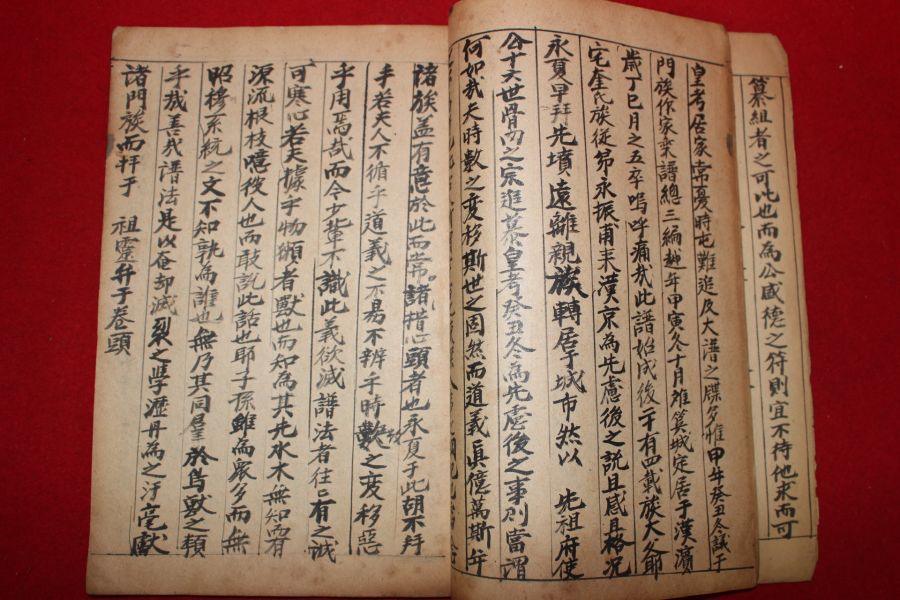 纂組者之可比也而為公感德之符則宜不待他求而可
皇考居家常憂時屯難追及大譜之牒多惟甲午癸丑冬議于
門族作家乘譜總三編越年甲寅冬十月雉箕城定居于漢濱
歲丁巳月之五卒嗚呼痛哉此譜始成後二十有四載族大父爺
宅奎氏族從弟永振甫来漢京為先慮後之說且感且格况
永夏早拜先墳遠離親族轉居于城市然以 先祖府使
公十六世骨肉之宗追慕皇考癸丑冬為先慮後之事則當謂
何如哉天時數之变移斯世之固然而道義眞億萬斯年
諸族益有意於此而常諸措心頭者也永夏于此胡不拜
手若夫人不循乎道義之不易不辨乎時數之变移惡
乎用焉哉而今少輩不識此義欲滅譜法者往已有之誠
可寒心若夫據乎物獺者獸也而知為其先水木無知而有
源流根枝噫後人也而敢說此話也耶子孫雖為衆多而無
昭穆系統之文不知孰為誰也無乃其同歸於鳥獸之類
乎哉善哉譜法是以奄却滅裂之學瀝丹為之汗毫獻
諸門族而拜于 祖靈弁于卷頭